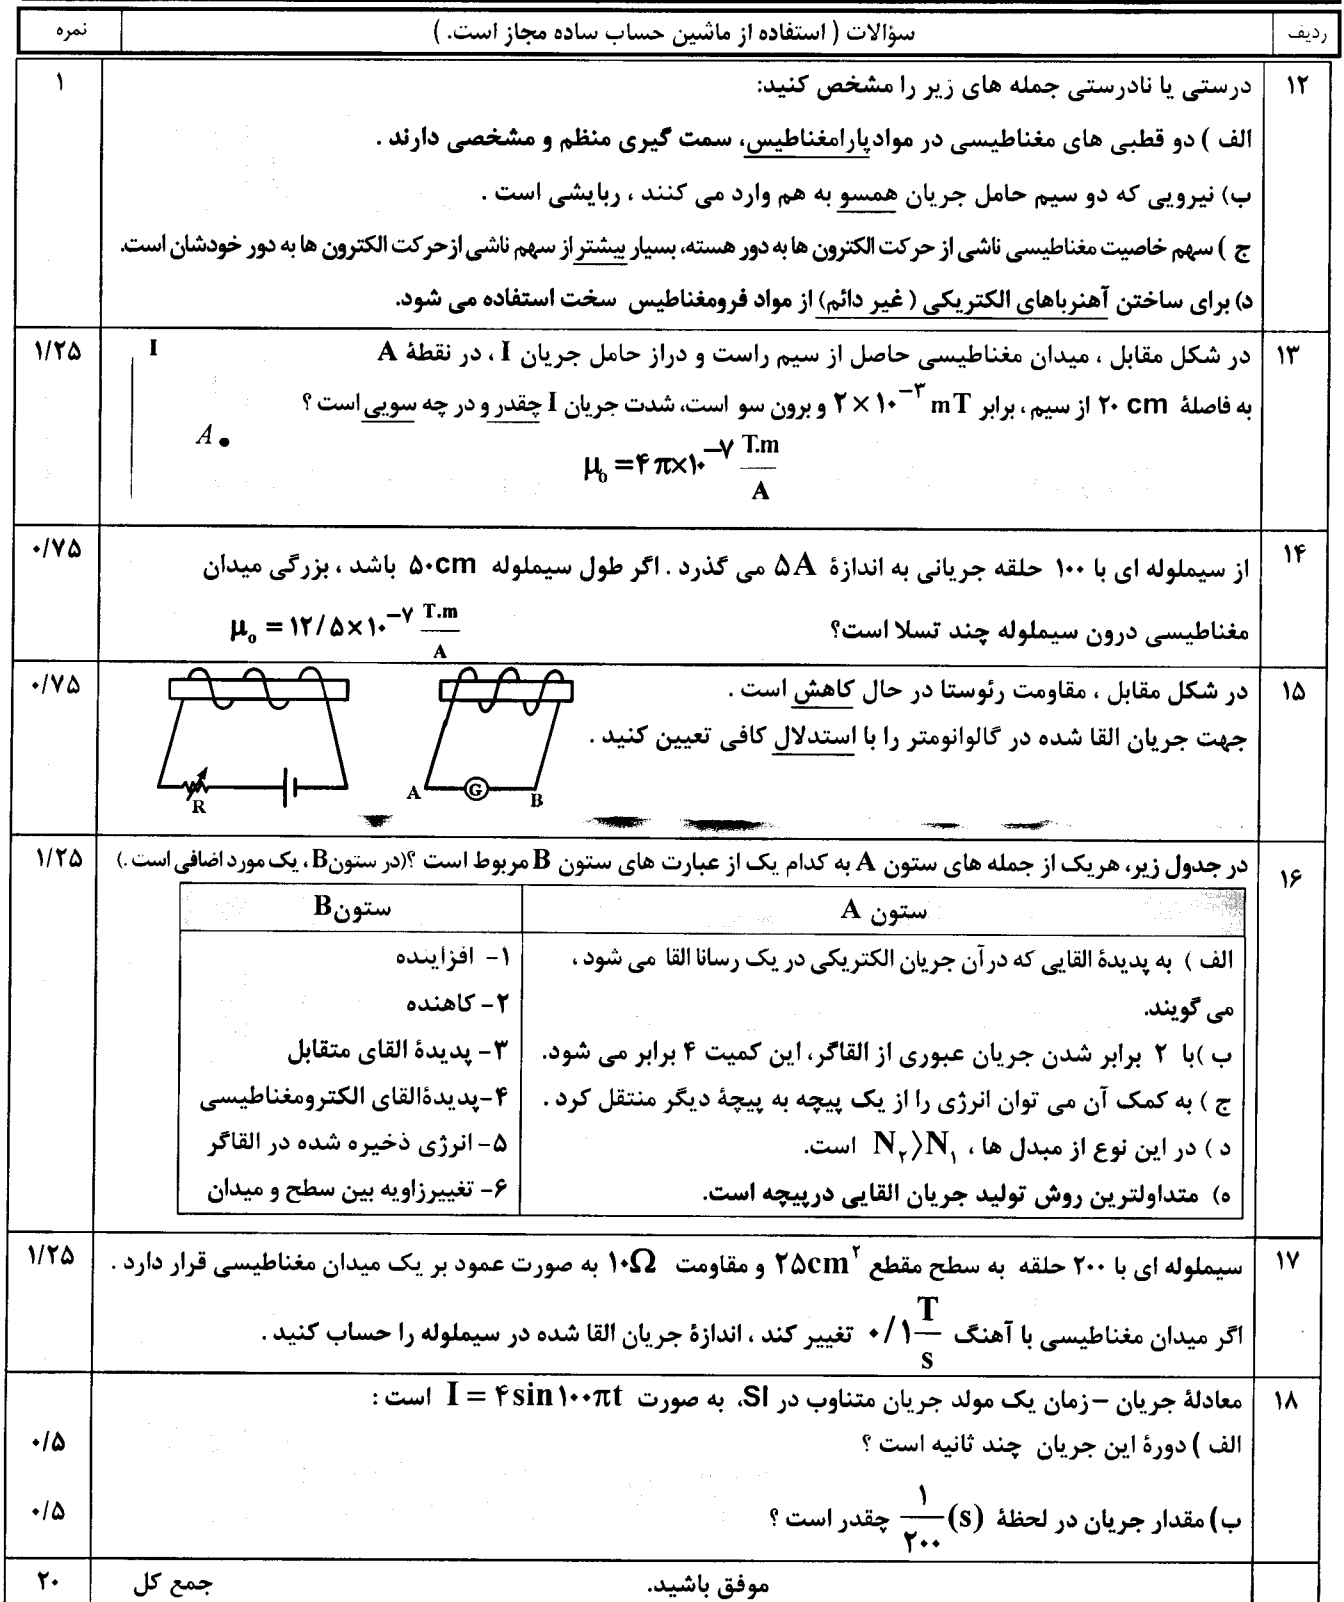 ردیف سؤالات ( استفاده از ماشین حساب ساده مجاز است. ) نمره
۱۲ درستی یا نادرستی جمله های زیر را مشخص کنید: ۱
الف ) دو قطبی های مغناطیسی در موادپارامغناطیس، سمت گیری منظم و مشخصی دارند .
ب) نیرویی که دو سیم حامل جریان همسو به هم وارد می کنند ، ربایشی است .
ج ) سهم خاصیت مغناطیسی ناشی از حرکت الکترون ها به دور هسته، بسیار بیشتر از سهم ناشی ازحرکت الکترون ها به دور خودشان است.
د) برای ساختن آهنرباهای الکتریکی ( غیر دائم) از مواد فرومغناطیس سخت استفاده می شود.
۱۳ در شکل مقابل ، میدان مغناطیسی حاصل از سیم راست و دراز حامل جریان I ، در نقطهٔ A ۱/۲۵
به فاصلهٔ ۲۰ cm از سیم ، برابر ۲×۱۰⁻³ mT و برون سو است، شدت جریان I چقدر و در چه سویی است ؟
μ₀ = ۴π×۱۰⁻⁷ T.m/A
I
A
۱۴ از سیملوله ای با ۱۰۰ حلقه جریانی به اندازهٔ ۵A می گذرد . اگر طول سیملوله ۵۰cm باشد ، بزرگی میدان ۰/۷۵
مغناطیسی درون سیملوله چند تسلا است؟ μ₀ = ۱۲/۵×۱۰⁻⁷ T.m/A
۱۵ در شکل مقابل ، مقاومت رئوستا در حال کاهش است . ۰/۷۵
جهت جریان القا شده در گالوانومتر را با استدلال کافی تعیین کنید .
R A G B
۱۶ در جدول زیر، هریک از جمله های ستون A به کدام یک از عبارت های ستون B مربوط است ؟(در ستونB ، یک مورد اضافی است .) ۱/۲۵
ستون A ستونB
الف ) به پدیدهٔ القایی که درآن جریان الکتریکی در یک رسانا القا می شود ، ۱- افزاینده
می گویند. ۲- کاهنده
ب )با ۲ برابر شدن جریان عبوری از القاگر، این کمیت ۴ برابر می شود. ۳- پدیدهٔ القای متقابل
ج ) به کمک آن می توان انرژی را از یک پیچه به پیچهٔ دیگر منتقل کرد . ۴-پدیدهٔالقای الکترومغناطیسی
د ) در این نوع از مبدل ها ، N₂⟩N₁ است. ۵- انرژی ذخیره شده در القاگر
ه) متداولترین روش تولید جریان القایی درپیچه است. ۶- تغییرزاویه بین سطح و میدان
۱۷ سیملوله ای با ۲۰۰ حلقه به سطح مقطع ۲۵cm² و مقاومت ۱۰Ω به صورت عمود بر یک میدان مغناطیسی قرار دارد . ۱/۲۵
اگر میدان مغناطیسی با آهنگ ۰/۱ T/s تغییر کند ، اندازهٔ جریان القا شده در سیملوله را حساب کنید .
۱۸ معادلهٔ جریان – زمان یک مولد جریان متناوب در SI، به صورت I = ۴sin۱۰۰πt است :
الف ) دورهٔ این جریان چند ثانیه است ؟ ۰/۵
ب) مقدار جریان در لحظهٔ ۱/۲۰۰ (s) چقدر است ؟ ۰/۵
موفق باشید. جمع کل ۲۰